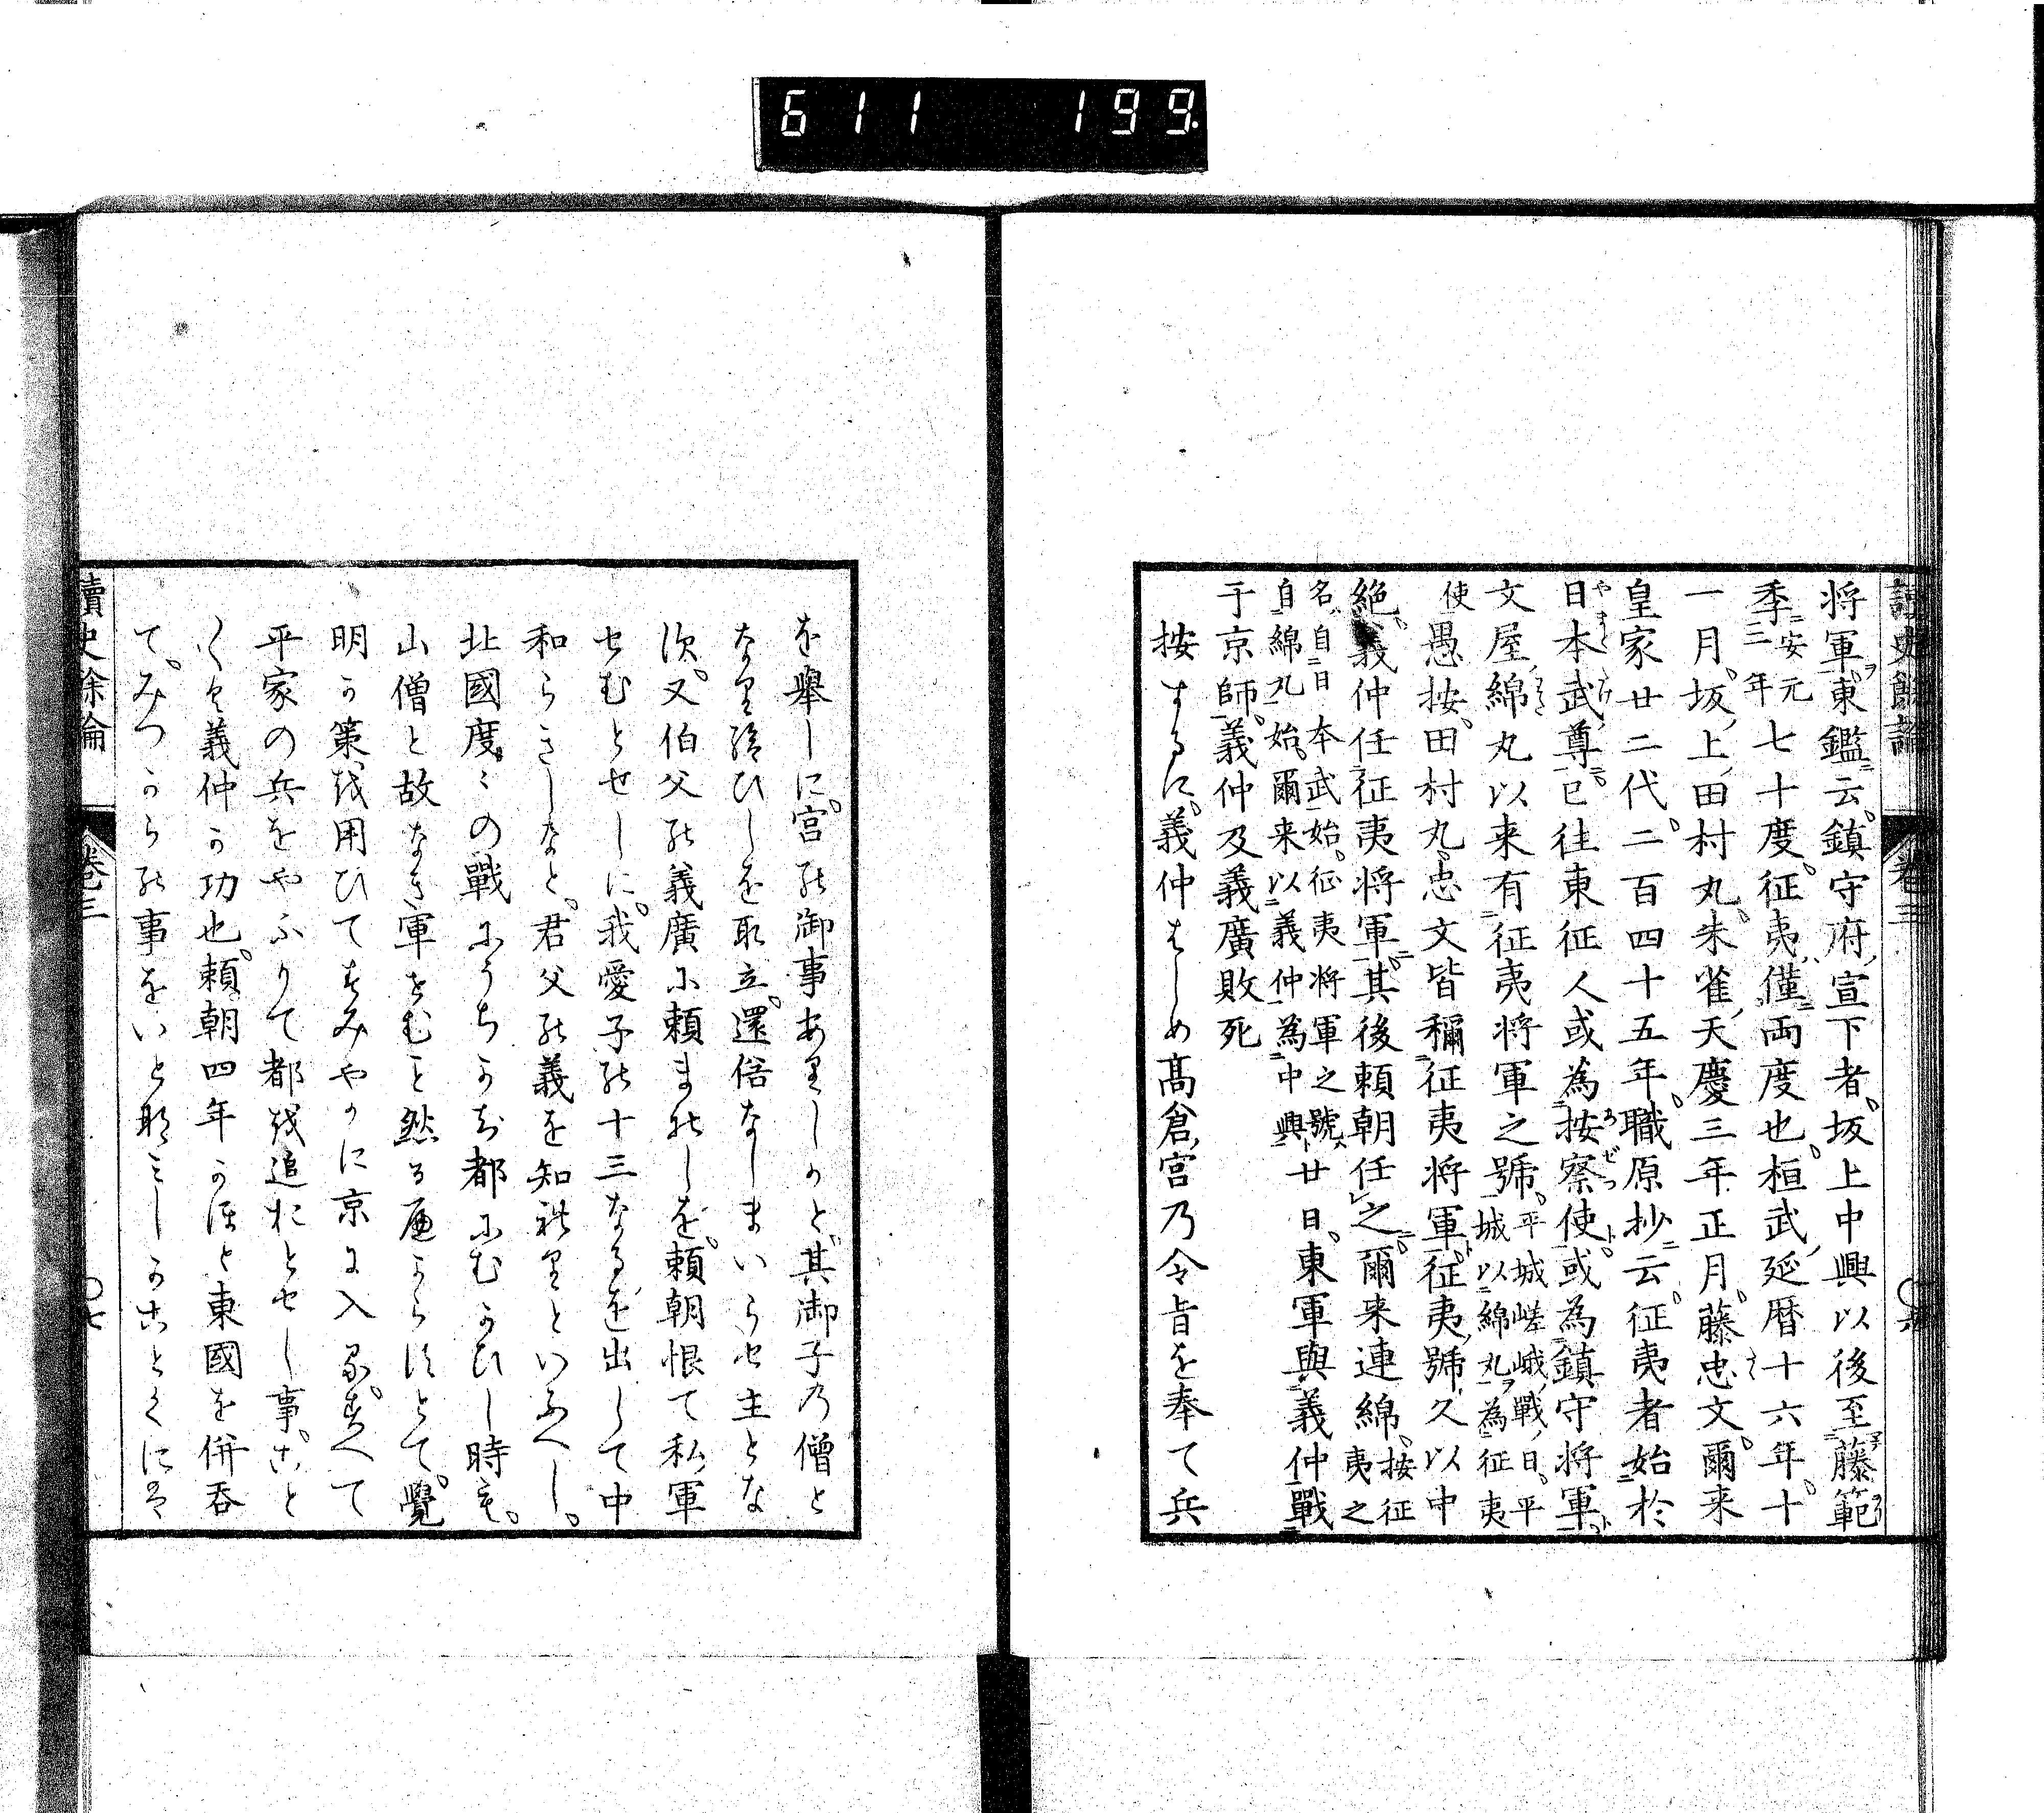 611 199.
讀史餘論 卷三
将軍東鑑云鎮守府宣下者坂上中興以後至藤範
季安元二年七十度征夷僅両度也桓武延暦十六年十
一月坂上田村丸朱雀天慶三年正月藤忠文爾来
皇家廿二代二百四十五年職原抄云征夷者始於
日本武尊已往東征人或為按察使或為鎮守将軍
文屋綿丸以来有征夷将軍之號平城嵯峨戦日平城以綿丸為征夷
使愚按田村丸忠文皆稱征夷将軍征夷號久以中
絶義仲任征夷将軍其後頼朝任之爾来連綿按征夷之
名自日本武始征夷将軍之號
自綿丸始爾来以義仲為中興廿日東軍與義仲戰
于京師義仲及義廣敗死
按するに義仲はしめ髙倉宮乃令旨を奉て兵
を舉しに宮の御事ありしかと其御子乃僧と
なり給ひしを取立還俗なしまいらせ主とな
次又伯父の義廣に頼まれしを頼朝恨て私軍
せむとせしに我愛子の十三なるを出して中
和らきしなと君父の義を知れりといふへし
北國度〻の戰にうちかち都にむかひし時も
山僧と故なき軍せむこと然る處よらすとて覺
明か策を用ひてすみやかに京に入るすへて
平家の兵をやふりて都を追おとせし事こと
〱く義仲か功也頼朝四年かほと東國を併呑
てみつからの事をいとなみしかことくには
讀史餘論 卷三 〇七